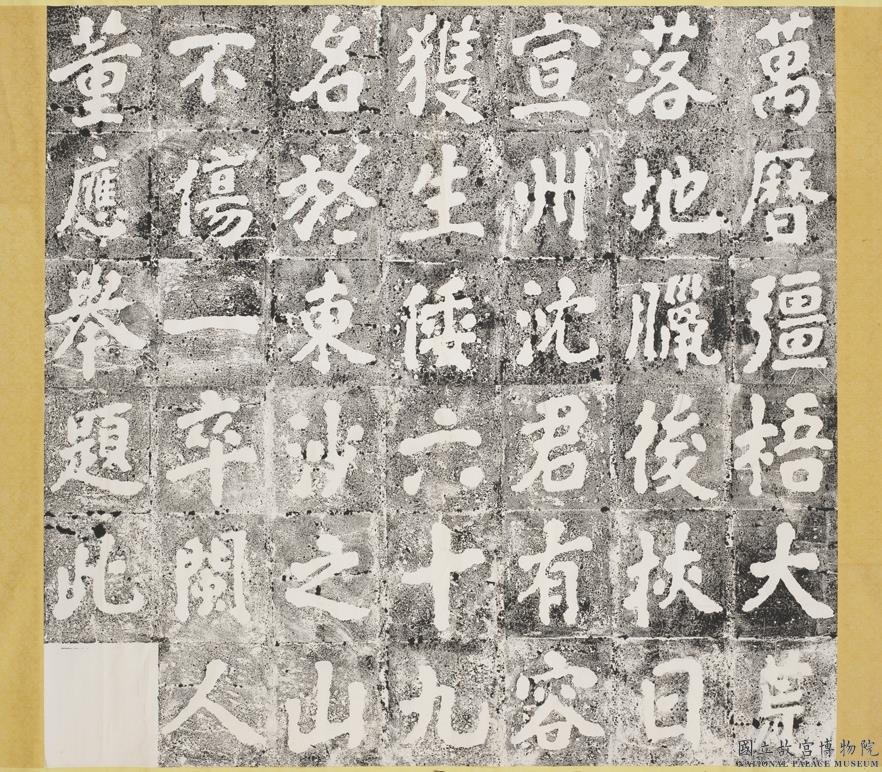 萬曆彊梧大荒
落地臘後挾日
宣州沈君有容
獲生倭六十九
名於東沙之山
不傷一卒閩人
董應舉題此
國立故宮博物院
NATIONAL PALACE MUSEUM